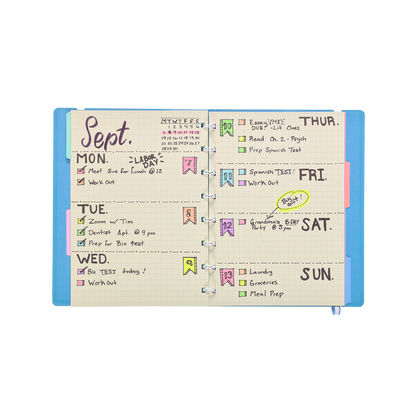 Sept.
M T W T F S S
MON.
LABOR
DAY
7
Meet Sue for Lunch @ 12
Work Out
TUE.
8
Zoom w/ Tim
Dentist Apt. @ 4 pm
Prep for Bio test
WED.
9
Bio TEST today!
Work Out
10
THUR.
Essay (ME)
DUE! - Lit Class
Read Ch. 2 - Psych
Prep Spanish Test
11
FRI.
Spanish TEST!
Work Out
Buy
Gift!
12
SAT.
Grandma's B-DAY
Party @ 5 pm
13
SUN.
Laundry
Groceries
Meal Prep